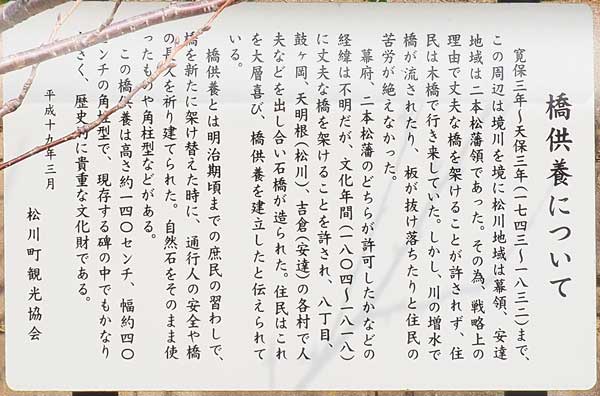 橋供養について
寛保三年～天保三年(一七四三～一八三二)まで、
この周辺は境川を境に松川地域は幕領、安達
地域は二本松藩領であった。その為、戦略上の
理由で丈夫な橋を架けることが許されず、住
民は木橋で行き来していた。しかし、川の増水で
橋が流されたり、板が抜け落ちたりと住民の
苦労が絶えなかった。
幕府、二本松藩のどちらが許可したかなどの
経緯は不明だが、文化年間(一八〇四～一八一八)
に丈夫な橋を架けることを許され、八丁目、
鼓ヶ岡、天明根(松川)、吉倉(安達)の各村で人
夫などを出し合い石橋が造られた。住民はこれ
を大層喜び、橋供養を建立したと伝えられて
いる。
橋供養とは明治期頃までの庶民の習わしで、
橋を新たに架け替えた時に、通行人の安全や橋
の長久を祈り建てられた。自然石をそのまま使
ったものや角柱型などがある。
この橋供養は高さ約一四〇センチ、幅約四〇
センチの角柱型で、現存する碑の中でもかなり
きく、歴史的に貴重な文化財である。
平成十九年三月
松川町観光協会